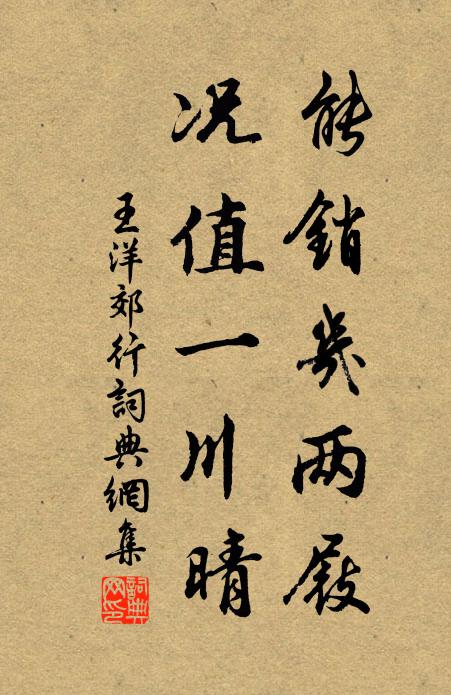 能销几两屐
况值一川晴
王洋郊行詞典網集
詞典网印